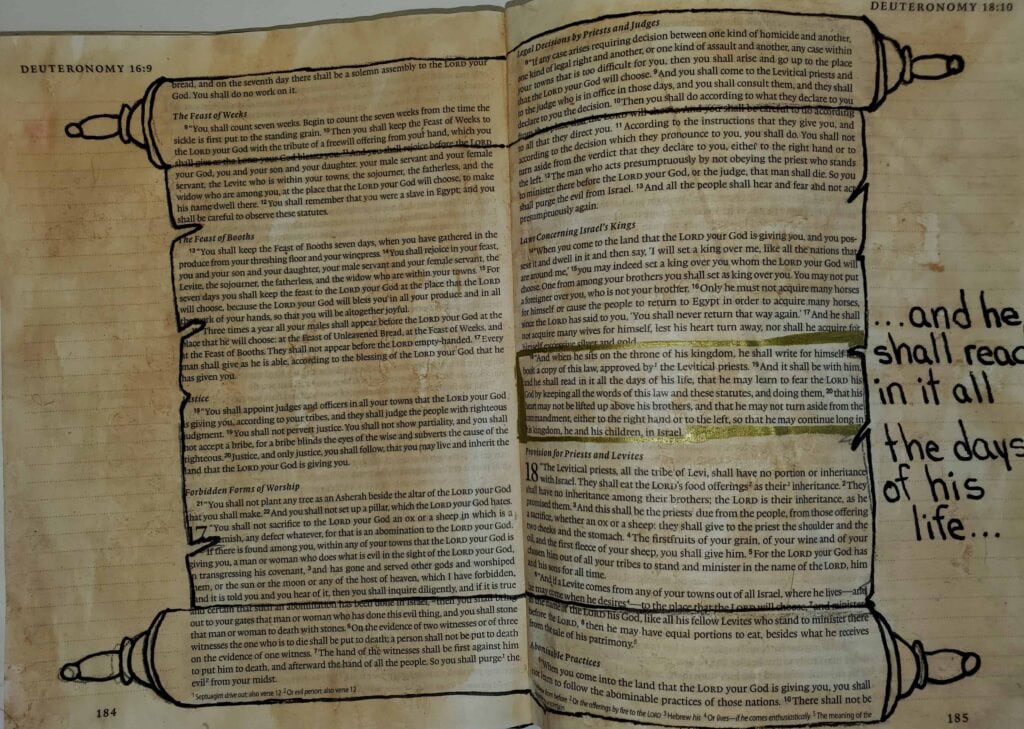 DEUTERONOMY 16:9
bread, and on the seventh day there shall be a solemn assembly to the LORD your
God. You shall do no work on it.
The Feast of Weeks
9 "You shall count seven weeks. Begin to count the seven weeks from the time the
sickle is first put to the standing grain. 10 Then you shall keep the Feast of Weeks to
the LORD your God with the tribute of a freewill offering from your hand, which you
shall give as the LORD your God blesses you. 11 And you shall rejoice before the LORD
your God, you and your son and your daughter, your male servant and your female
servant, the Levite who is within your towns, the sojourner, the fatherless, and the
widow who are among you, at the place that the LORD your God will choose, to make
his name dwell there. 12 You shall remember that you were a slave in Egypt; and you
shall be careful to observe these statutes.
The Feast of Booths
13 "You shall keep the Feast of Booths seven days, when you have gathered in the
produce from your threshing floor and your winepress. 14 You shall rejoice in your feast,
you and your son and your daughter, your male servant and your female servant, the
Levite, the sojourner, the fatherless, and the widow who are within your towns. 15 For
seven days you shall keep the feast to the LORD your God at the place that the LORD
will choose, because the LORD your God will bless you in all your produce and in all
the work of your hands, so that you will be altogether joyful.
"Three times a year all your males shall appear before the LORD your God at the
place that he will choose: at the Feast of Unleavened Bread, at the Feast of Weeks, and
at the Feast of Booths. They shall not appear before the LORD empty-handed. 17 Every
man shall give as he is able, according to the blessing of the LORD your God that he
has given you.
Justice
18 "You shall appoint judges and officers in all your towns that the LORD your God
is giving you, according to your tribes, and they shall judge the people with righteous
judgment. 19 You shall not pervert justice. You shall not show partiality, and you shall
not accept a bribe, for a bribe blinds the eyes of the wise and subverts the cause of the
righteous. 20 Justice, and only justice, you shall follow, that you may live and inherit the
land that the LORD your God is giving you.
Forbidden Forms of Worship
21 "You shall not plant any tree as an Asherah beside the altar of the LORD your God
that you shall make. 22 And you shall not set up a pillar, which the LORD your God hates.
17 "You shall not sacrifice to the LORD your God an ox or a sheep in which is a
blemish, any defect whatever, for that is an abomination to the LORD your God.
"If there is found among you, within any of your towns that the LORD your God is
giving you, a man or woman who does what is evil in the sight of the LORD your God,
in transgressing his covenant, 3 and has gone and served other gods and worshiped
them, or the sun or the moon or any of the host of heaven, which I have forbidden,
and it is told you and you hear of it, then you shall inquire diligently, and if it is true
and certain that such an abomination has been done in Israel, 5 then you shall bring
out to your gates that man or woman who has done this evil thing, and you shall stone
that man or woman to death with stones. 6 On the evidence of two witnesses or of three
witnesses the one who is to die shall be put to death; a person shall not be put to death
on the evidence of one witness. 7 The hand of the witnesses shall be first against him
to put him to death, and afterward the hand of all the people. So you shall purge 1 the
evil 2 from your midst.
1 Septuagint drive out; also verse 12 2 Or evil person; also verse 12
184
DEUTERONOMY 18:10
Legal Decisions by Priests and Judges
8 "If any case arises requiring decision between one kind of homicide and another,
one kind of legal right and another, or one kind of assault and another, any case within
your towns that is too difficult for you, then you shall arise and go up to the place
that the LORD your God will choose. 9 And you shall come to the Levitical priests and
to the judge who is in office in those days, and you shall consult them, and they shall
declare to you the decision. 10 Then you shall do according to what they declare to you
from that place that the LORD will choose. And you shall be careful to do according
to all that they direct you. 11 According to the instructions that they give you, and
according to the decision which they pronounce to you, you shall do. You shall not
turn aside from the verdict that they declare to you, either to the right hand or to
the left. 12 The man who acts presumptuously by not obeying the priest who stands
to minister there before the LORD your God, or the judge, that man shall die. So you
shall purge the evil from Israel. 13 And all the people shall hear and fear and not act
presumptuously again.
Laws Concerning Israel's Kings
14 "When you come to the land that the LORD your God is giving you, and you pos-
sess it and dwell in it and then say, 'I will set a king over me, like all the nations that
are around me,' 15 you may indeed set a king over you whom the LORD your God will
choose. One from among your brothers you shall set as king over you. You may not put
a foreigner over you, who is not your brother. 16 Only he must not acquire many horses
for himself or cause the people to return to Egypt in order to acquire many horses,
since the LORD has said to you, 'You shall never return that way again.' 17 And he shall
not acquire many wives for himself, lest his heart turn away, nor shall he acquire for
himself excessive silver and gold.
18 "And when he sits on the throne of his kingdom, he shall write for himself in a
book a copy of this law, approved by 1 the Levitical priests. 19 And it shall be with him,
and he shall read in it all the days of his life, that he may learn to fear the LORD his
God by keeping all the words of this law and these statutes, and doing them, 20 that his
heart may not be lifted up above his brothers, and that he may not turn aside from the
commandment, either to the right hand or to the left, so that he may continue long in
his kingdom, he and his children, in Israel.
Provision for Priests and Levites
18 "The Levitical priests, all the tribe of Levi, shall have no portion or inheritance
with Israel. They shall eat the LORD's food offerings 2 as their 3 inheritance. 2 They
shall have no inheritance among their brothers; the LORD is their inheritance, as he
promised them. 3 And this shall be the priests' due from the people, from those offering
a sacrifice, whether an ox or a sheep: they shall give to the priest the shoulder and the
two cheeks and the stomach. 4 The firstfruits of your grain, of your wine and of your
oil, and the first fleece of your sheep, you shall give him. 5 For the LORD your God has
chosen him out of all your tribes to stand and minister in the name of the LORD, him
and his sons for all time.
6 "And if a Levite comes from any of your towns out of all Israel, where he lives—and
he may come when he desires 4—to the place that the LORD will choose, 7 and ministers
in the name of the LORD his God, like all his fellow Levites who stand to minister there
before the LORD, 8 then he may have equal portions to eat, besides what he receives
from the sale of his patrimony. 5
Abominable Practices
9 "When you come into the land that the LORD your God is giving you, you shall
not learn to follow the abominable practices of those nations. 10 There shall not be
from before 2 Or the offerings by fire to the LORD 3 Hebrew his 4 Or lives—if he comes enthusiastically 5 The meaning of the
185
...and he
shall read
in it all
the days
of his
life...